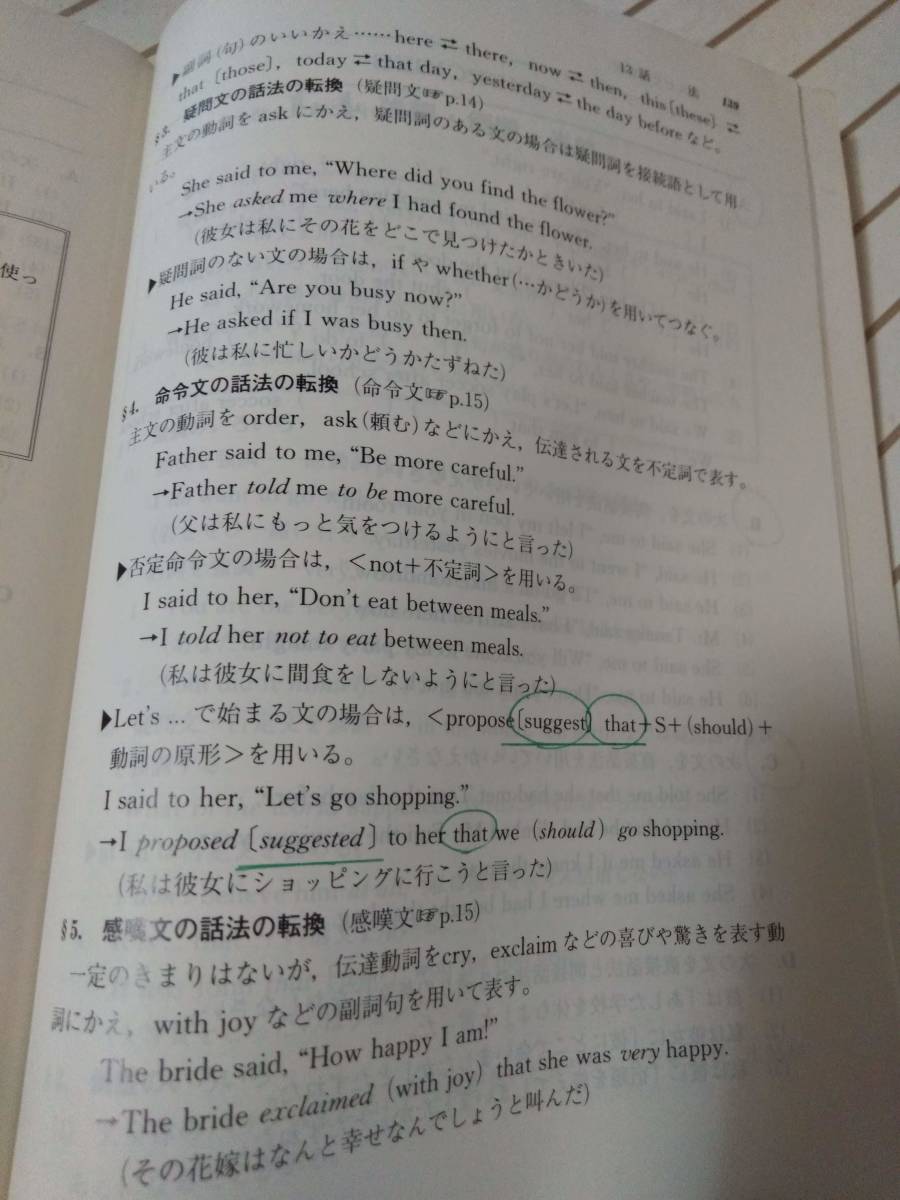 13 話 法 139
▶副詞(句)のいいかえ……here ⇄ there, now ⇄ then, this〔these〕 ⇄
that〔those〕, today ⇄ that day, yesterday ⇄ the day before など。
§3. 疑問文の話法の転換 (疑問文☞p.14)
主文の動詞を ask にかえ, 疑問詞のある文の場合は疑問詞を接続語として用
いる。
She said to me, “Where did you find the flower?”
→She asked me where I had found the flower.
(彼女は私にその花をどこで見つけたかときいた)
▶疑問詞のない文の場合は, if や whether(…かどうか)を用いてつなぐ。
He said, “Are you busy now?”
→He asked if I was busy then.
(彼は私に忙しいかどうかたずねた)
§4. 命令文の話法の転換 (命令文☞p.15)
主文の動詞を order, ask(頼む)などにかえ, 伝達される文を不定詞で表す。
Father said to me, “Be more careful.”
→Father told me to be more careful.
(父は私にもっと気をつけるようにと言った)
▶否定命令文の場合は, <not+不定詞>を用いる。
I said to her, “Don't eat between meals.”
→I told her not to eat between meals.
(私は彼女に間食をしないようにと言った)
▶Let's … で始まる文の場合は, <propose〔suggest〕 that+S+(should)+
動詞の原形>を用いる。
I said to her, “Let's go shopping.”
→I proposed〔suggested〕to her that we (should) go shopping.
(私は彼女にショッピングに行こうと言った)
§5. 感嘆文の話法の転換 (感嘆文☞p.15)
一定のきまりはないが, 伝達動詞をcry, exclaim などの喜びや驚きを表す動
詞にかえ, with joy などの副詞句を用いて表す。
The bride said, “How happy I am!”
→The bride exclaimed (with joy) that she was very happy.
(その花嫁はなんと幸せなんでしょうと叫んだ)
使っ